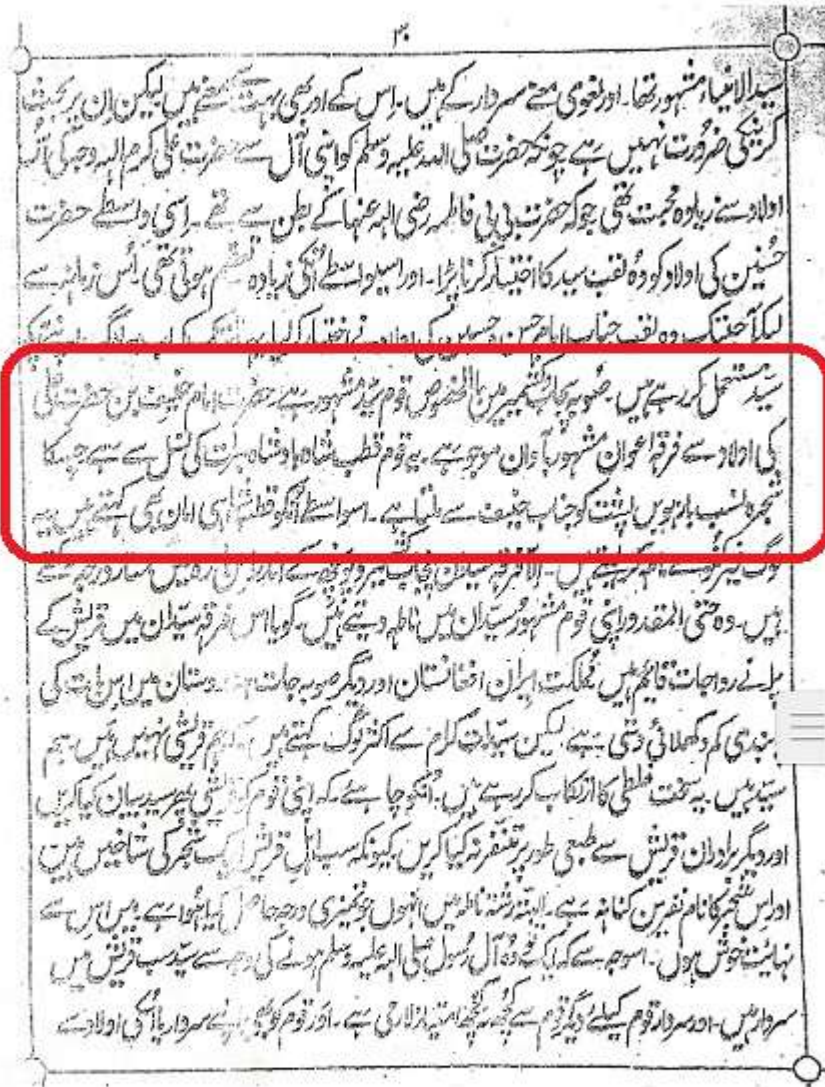 ۳۰
سیدالانبیاء مشہور تھا۔ اور لغوی معنے سردار کے ہیں۔ اِس کے اور بھی بہت سے معنے ہیں لیکن اِن پر بحث
کرنیکی ضرورت نہیں ہے چونکہ حضرت صلی اللہ علیہ وسلم کو اپنی آل سے حضرت علی کرم اللہ وجہہ کی اُس
اولاد سے زیادہ محبت تھی جو کہ حضرت بی بی فاطمہ رضی اللہ عنہا کے بطن سے تھے۔ اِسی واسطے حضرت
حسنین کی اولاد کو وُہ لقب سید کا اختیار کرنا پڑا۔ اور اسیواسطے اُنکی زیادہ تعظیم ہوتی تھی۔ اُس زمانہ سے
لیکر آجتک وہ لقب جناب امام حسن حسین کی اولاد نے اختیار کر لیا
سید مستعمل کر رہے ہیں۔ صوبہ پنجاب کشمیر میں بالخصوص قوم سید مشہور ہے حضرت امام حنیف بن حضرت علی
کی اولاد سے فرقہ اعوان مشہور بآوان موجود ہے۔ یہ قوم قطب شاہ بادشاہ ہرات کی نسل سے ہے جسکا
شجرہ نسب بارہویں پشت کو جناب حنیف سے ملتا ہے۔ اسواسطے اُنکو قطب شاہی اوان بھی کہتے ہیں یہ
لوگ غیر قوم سے ناطہ کر لیتے ہیں۔ اِلّا فرقہ سیدان پنجاب کشمیر و پونچھ کے
ہیں۔ وہ حتی المقدور اپنی قوم مشہور سیدان میں ناطہ دیتے ہیں۔ گویا اس فرقہ سیدان میں قریش کے
پرانے رواجات قائم ہیں مملکت ایران افغانستان اور دیگر صوبہ جات ہندوستان میں اس بات کی
پابندی کم دکھلائی دیتی ہے لیکن سیدات کرام سے اکثر لوگ کہتے ہیں کہ ہم قریشی نہیں ہیں ہم
سید ہیں۔ یہ سخت غلطی کا ارتکاب کر رہے ہیں۔ اُنکو چاہئے۔ کہ اپنی قوم کو قریشی پھر سید بیان کیا کریں
اور دیگر برادران قریش سے طبعی طور پر متنفر نہ کیا کریں۔ کیونکہ سب اہل قریش ایک شجر کی شاخیں ہیں
اور اِس شجر کا نام نضر بن کنانہ ہے۔ البتہ رشتہ ناطہ میں انہوں جو تمیزی درجہ حاصل کیا ہُوا ہے۔ میں اس سے
نہایت خوش ہوں۔ اسوجہ سے کہ ایک تو وُہ آل رسول صلی اللہ علیہ وسلم ہونے کی وجہ سے سید سب قریش میں
سردار ہیں۔ اور سردار قوم کیلئے دیگر قوم سے کچھ نہ کچھ امتیاز لازمی ہے۔ اور قوم کو بھی اپنے سردار یا اُسکی اولاد سے